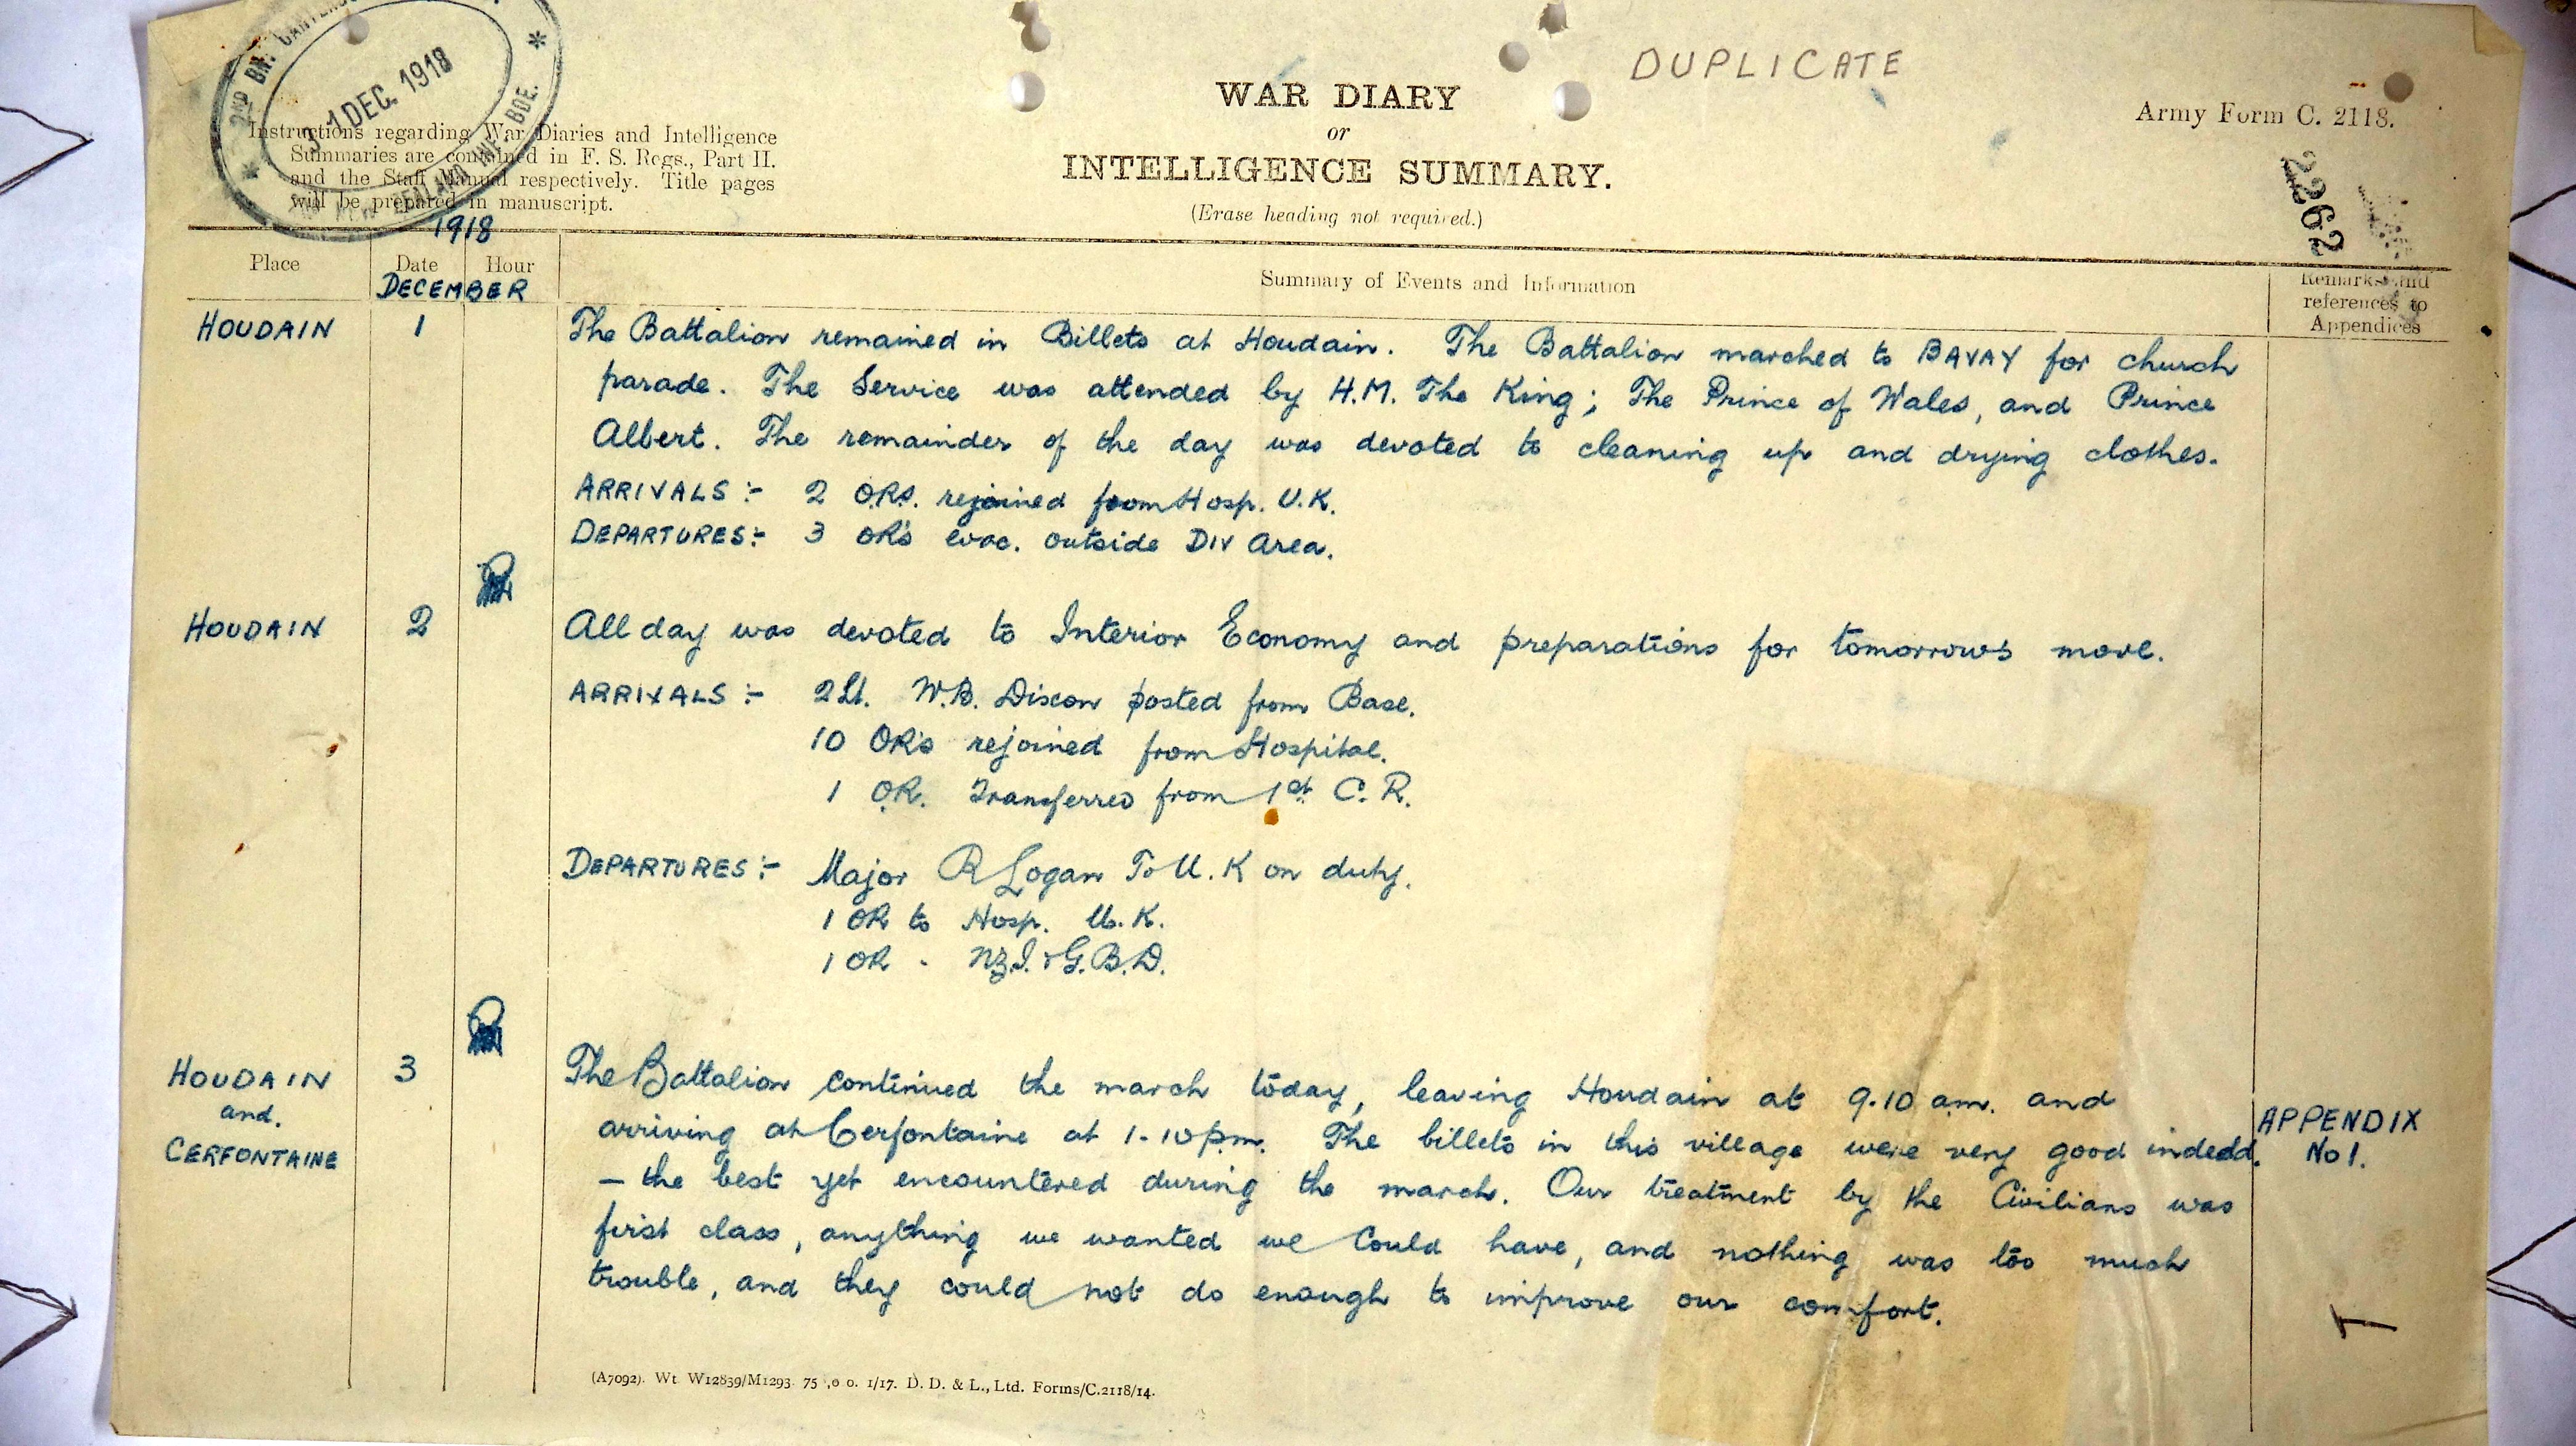 2ND BN. CANTERBURY
31 DEC. 1918
NEW ZEALAND INF. BDE.
DUPLICATE
WAR DIARY
or
INTELLIGENCE SUMMARY.
(Erase heading not required.)
Army Form C. 2118.
2262
Instructions regarding War Diaries and Intelligence
Summaries are contained in F. S. Regs., Part II.
and the Staff Manual respectively. Title pages
will be prepared in manuscript.
1918
Place
Date
Hour
DECEMBER
Summary of Events and Information
Remarks and
references to
Appendices
HOUDAIN 1 The Battalion remained in Billets at Houdain. The Battalion marched to BAVAY for church
parade. The Service was attended by H.M. The King; The Prince of Wales, and Prince
Albert. The remainder of the day was devoted to cleaning up and drying clothes.
ARRIVALS :- 2 O.R.s. rejoined from Hosp. U.K.
DEPARTURES :- 3 OR's evac. outside DIV Area.
HOUDAIN 2 All day was devoted to Interior Economy and preparations for tomorrows move.
ARRIVALS :- 2Lt. W.B. Dixon posted from Base.
10 OR's rejoined from Hospital.
1 O.R. Transferred from 1st C. R.
DEPARTURES :- Major R Logan To U.K on duty.
1 OR to Hosp. U.K.
1 OR - N.Z.I. & G.B.D.
HOUDAIN 3 The Battalion continued the march today, leaving Houdain at 9.10 am. and
and.
CERFONTAINE
arriving at Cerfontaine at 1-10 p.m. The billets in this village were very good indedd.
— the best yet encountered during the march. Our treatment by the Civilians was
first class, anything we wanted we could have, and nothing was too much
trouble, and they could not do enough to improve our comfort.
APPENDIX
No 1.
(A7092). Wt. W12839/M1293. 75 ,0 0. 1/17. D. D. & L., Ltd. Forms/C.2118/14.